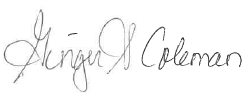 Ginger S Coleman